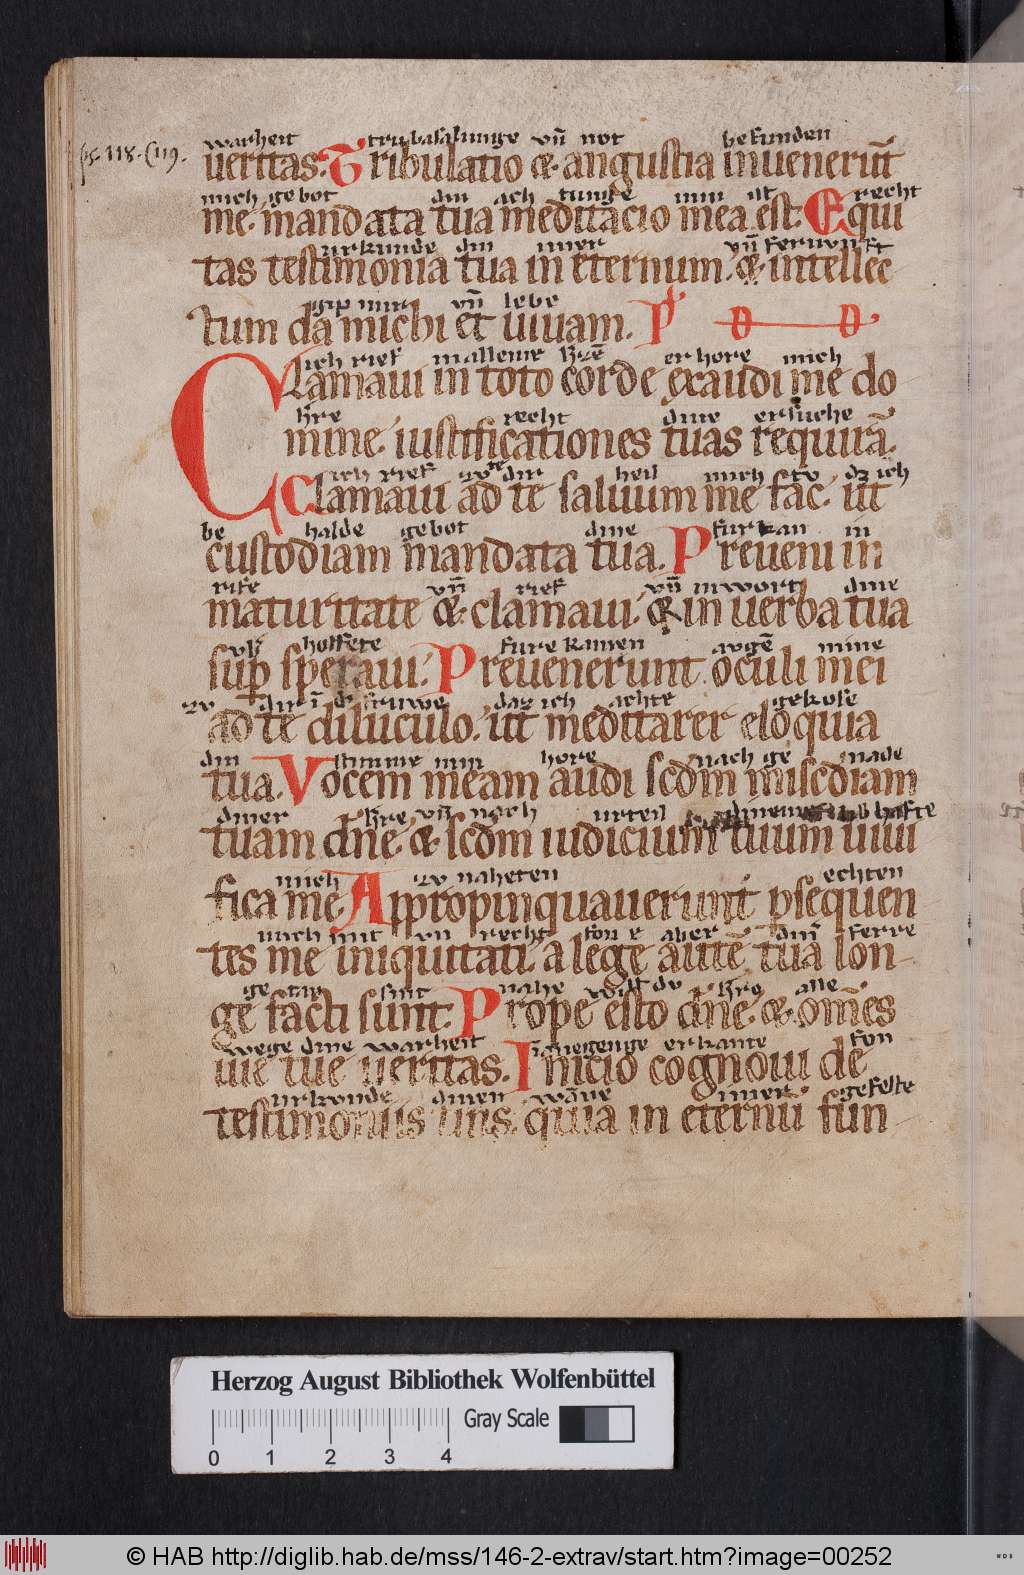 ps. 118. (119.
warheit trubasalunge vn̄ not befunden
ueritas. Tribulatio & angustia inueneru̅t
mich gebot din ach tunge min ist recht
me. mandata tua meditacio mea est. Equi
urkunde din imer vn̄ fernunft
tas testimonia tua in eternum. & intellec
gip mir vn̄ lebe
tum da michi et uiuam.
ich rief in alleme h̅re̅ erhore mich
Clamaui in toto corde exaudi me do
h̅re recht dine ersuche
mine. iustificationes tuas requira̅.
ich rief zv dir heil mich tv dz ich
Clamaui ad te saluum me fac. ut
be halde gebot dine furkan in
custodiam mandata tua. Preueni in
rife vn̄ rief vn̄ in wort dine
maturitate & clamaui. & in uerba tua
vb̅ hoffete fure kamen avge̅ mine
sup̱ speraui. Preuenerunt oculi mei
zv dir i̅ d̅ fruwe daz ich achte gekose
ad te diluculo. ut meditarer eloquia
din stimme min hore nach ge nade
tua. Vocem meam audi scdm misc̅diam
diner h̅re vn̄ nach urteil dineme lib hafte
tuam dn̅e. & scdm iudicium tuum uiui
mich zv naheten echten
fica me. Appropinquauerunt p̱sequen
mich mit vn recht fon e aber din̅ ferre
tes me iniquitati. a lege aute̅ tua lon
ge tan sint nahe wist dv h̅re alle
ge facti sunt. Prope esto dn̅e. & om̅es
wege dine warheit in anegenge erkante fon
uie tue ueritas. Inicio cognoui de
urkvnde dinen wa̅ne imer gefeste
testimoniis tuis. quia in eternu̅ fun
Herzog August Bibliothek Wolfenbüttel
Gray Scale
0 1 2 3 4
© HAB http://diglib.hab.de/mss/146-2-extrav/start.htm?image=00252